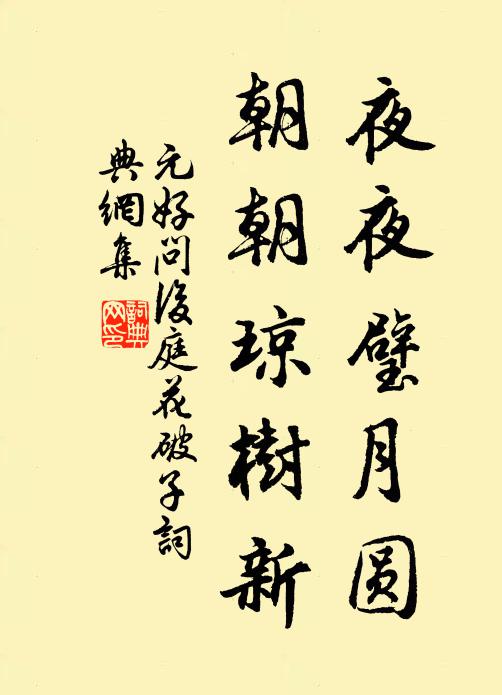 夜夜璧月圆
朝朝琼樹新
元好问後庭花破子詞
典網集
詞典网印